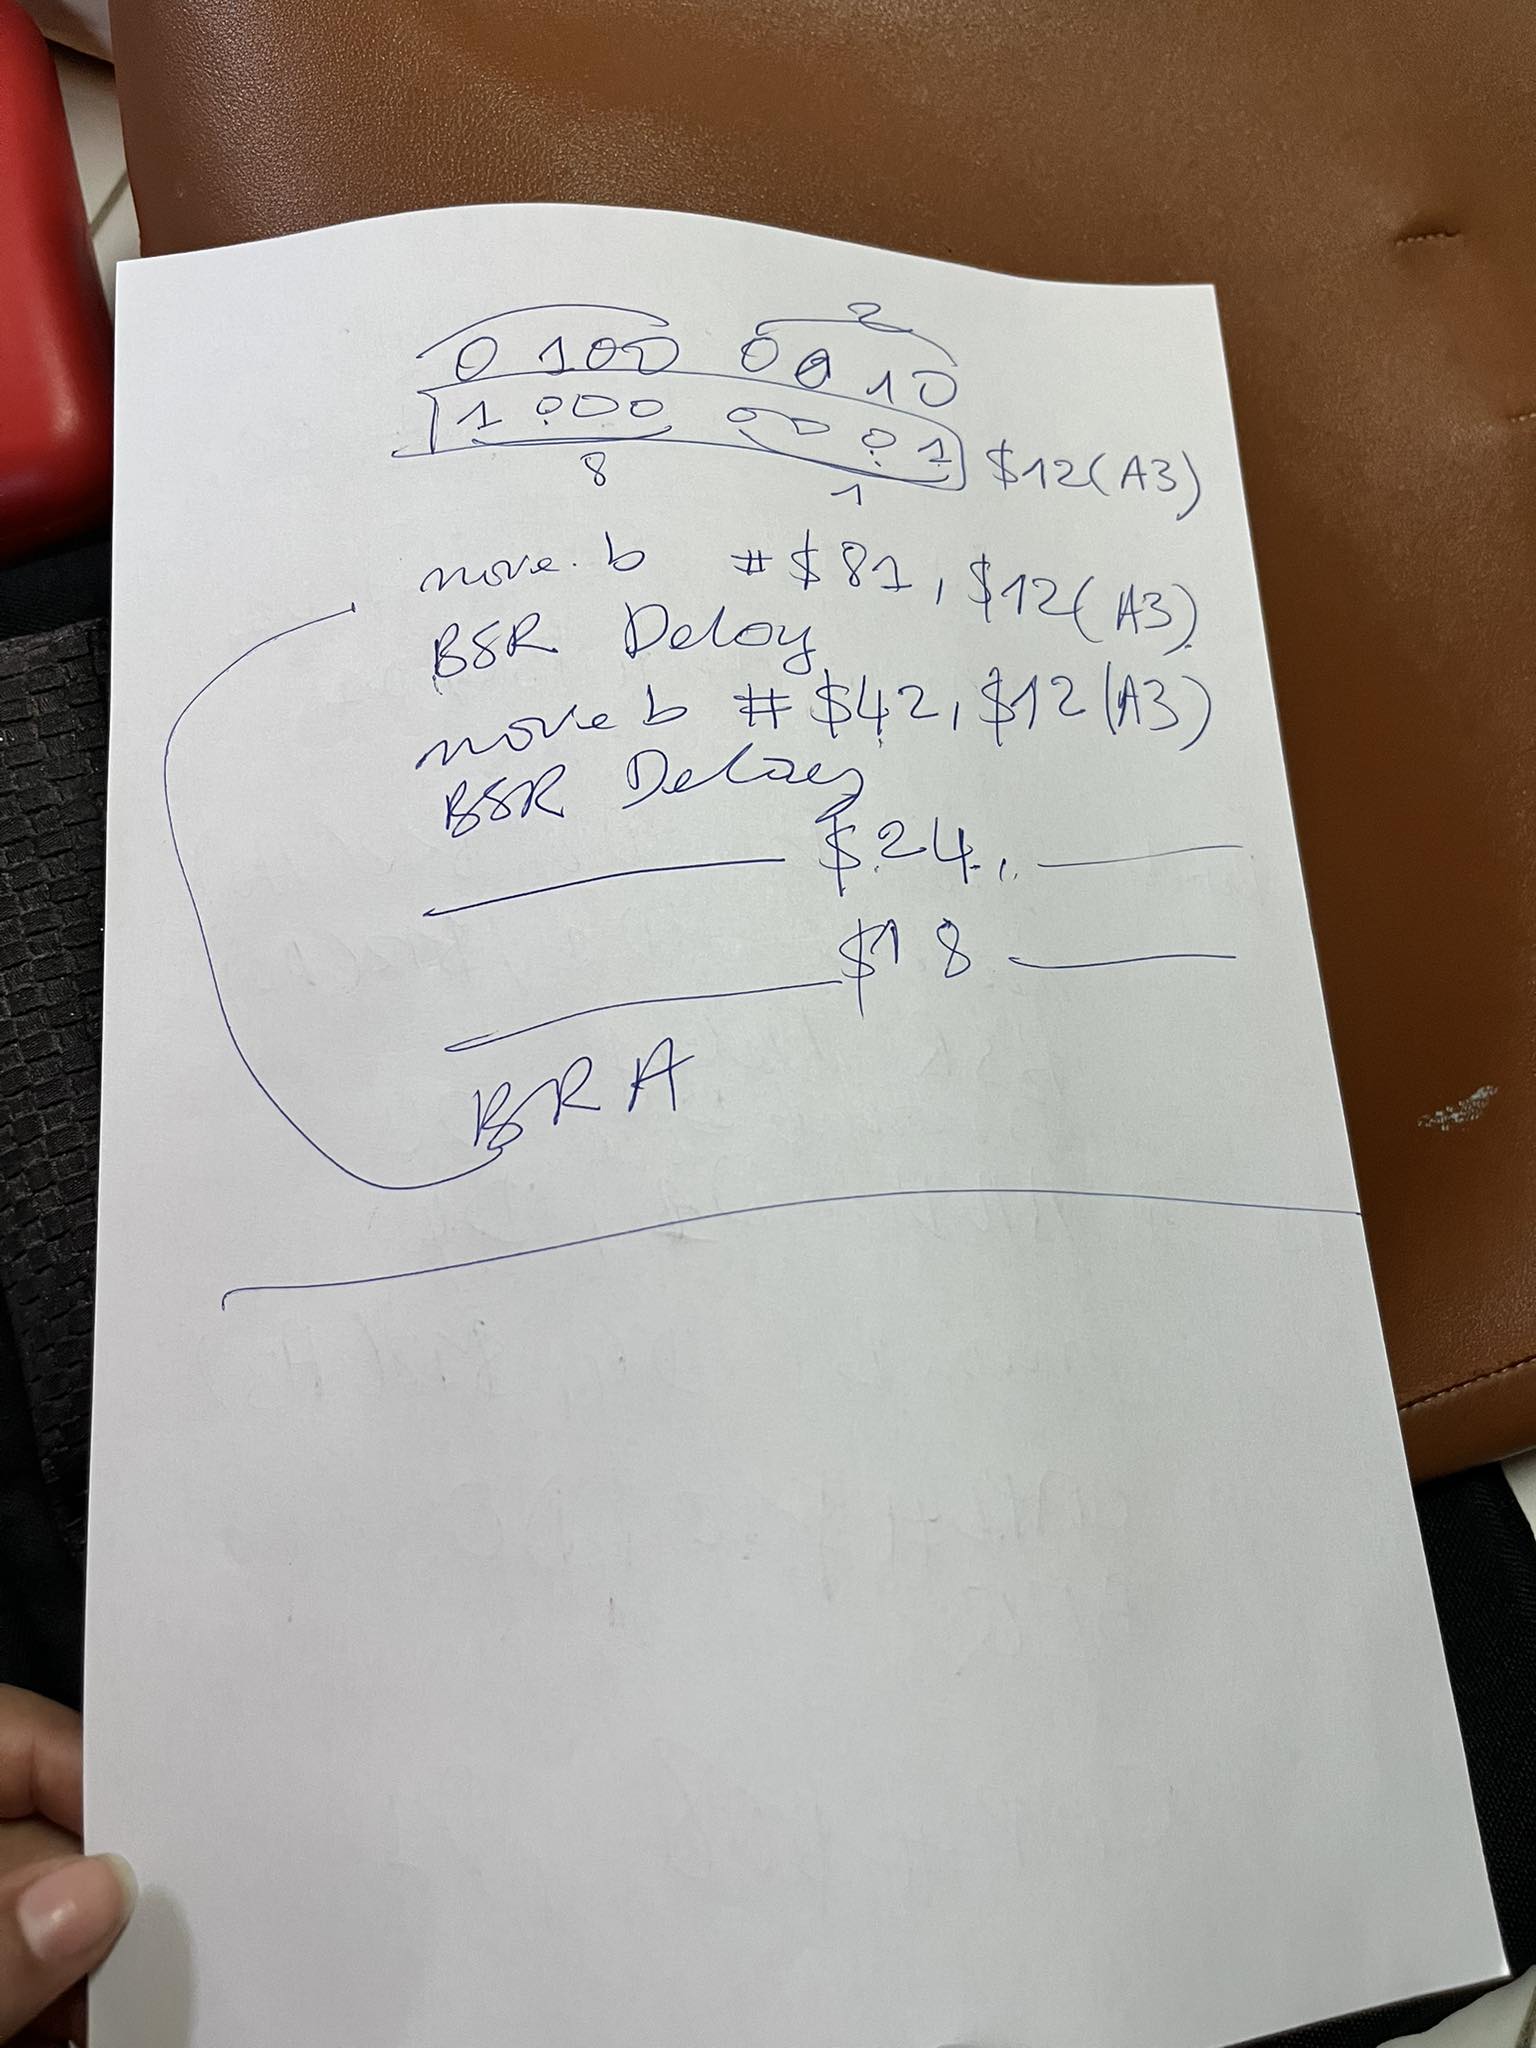 2
0 100 0010
1 000 0001 $12(A3)
8 1
move.b #$81, $12(A3)
BSR Delay
move b #$42, $12(A3)
BSR Delay
$24,
$18
BRA